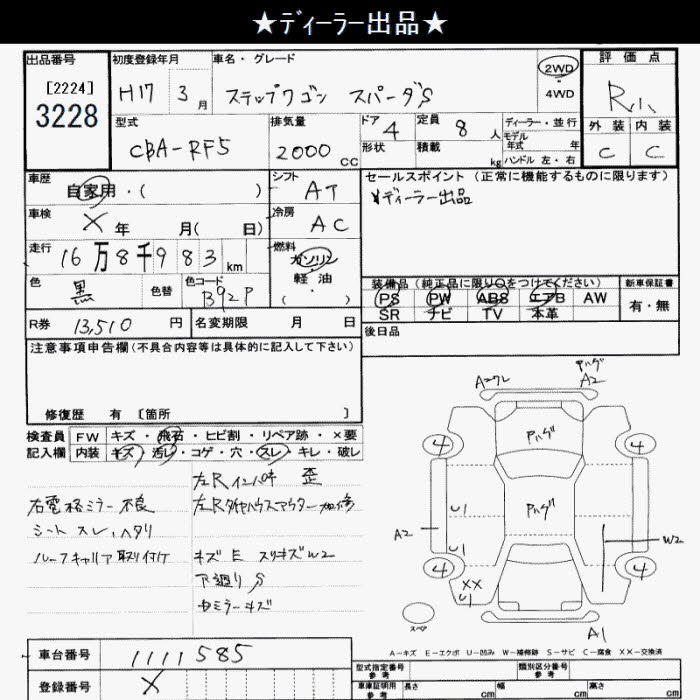 ★ディーラー出品★
出品番号
[2224]
3228
初度登録年月
H17 3月
車名・グレード
ステップワゴン スパーダS
2WD
・
4WD
評価点
R
外装 内装
C C
型式
CBA-RF5
排気量
2000 cc
ドア 4
形状
定員 8 人
積載 kg
ディーラー・並行
モデル
年式 年
ハンドル 左・右
車歴
自家用・( )
シフト AT
車検
X 年 月( 日)
冷房 AC
走行
16万8千983km
燃料
ガソリン
軽油
( )
色 黒
色替
色コード
B92P
R券 13,510 円
名変期限 月 日
セールスポイント(正常に機能するものに限ります)
¥ディーラー出品
装備品(純正品に限り○をつけてください)
PS PW ABS エアB AW
SR ナビ TV 本革
新車保証書
有・無
後日品
注意事項申告欄(不具合内容等は具体的に記入して下さい)
修復歴 有〔箇所 〕
検査員
記入欄
FW キズ・飛石・ヒビ割・リペア跡・×要
内装 キズ・汚レ・コゲ・穴・スレ・キレ・破レ
右電格ミラー不良
シート スレ、ヘタリ
ルーフキャリア取り付け
左Rインパネ 歪
左Rタイヤハウスアウター 加修
キズ E スリキズW2
下廻りS
ミラーキズ
Aクレ
ハゲ
A2
ハゲ
ハゲ
4 4
U1
A2
U1
W2
4 4
XX
U1
スペア
A1
A-キズ E-エクボ U-凹み W-補修跡 S-サビ C-腐食 XX-交換済
車台番号
1111585
登録番号
X
型式指定番号
参考
類別区分番号
参考
車庫証明用
参考
長さ cm
幅 cm
高さ cm